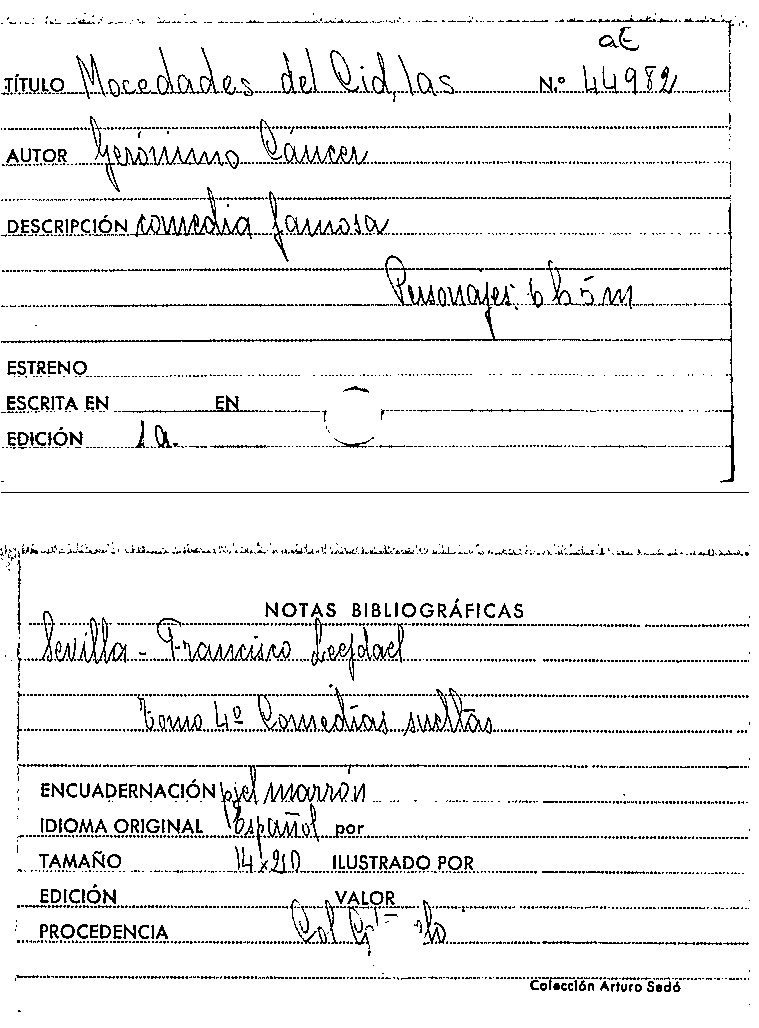 aE
TÍTULO Mocedades del Cid, las N.º 44982
AUTOR Gerónimo Cáncer
DESCRIPCIÓN comedia famosa
Personajes: 6 h 5 m
ESTRENO
ESCRITA EN EN
EDICIÓN 1a.
NOTAS BIBLIOGRÁFICAS
Sevilla - Francisco Leefdael
tomo 4º Comedias sueltas
ENCUADERNACIÓN piel marrón
IDIOMA ORIGINAL Español por
TAMAÑO 14x20 ILUSTRADO POR
EDICIÓN VALOR
PROCEDENCIA Col
Colección Arturo Sedó